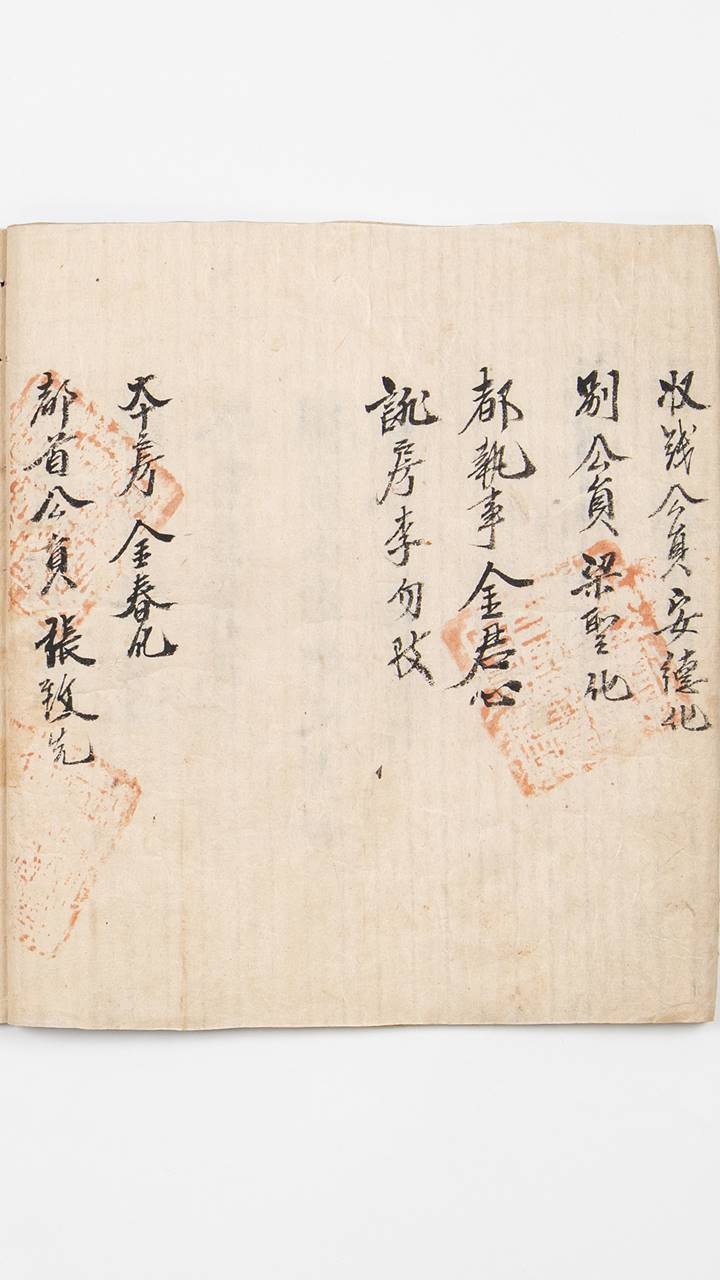 收錢公員安德化
別公員梁聖化
都執事金君心
房李勿
本房 金春凡
都首公員張致先